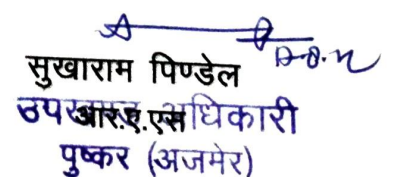 सुखाराम पिण्डेल
आर.ए.एस
उपखण्ड अधिकारी
पुष्कर (अजमेर)